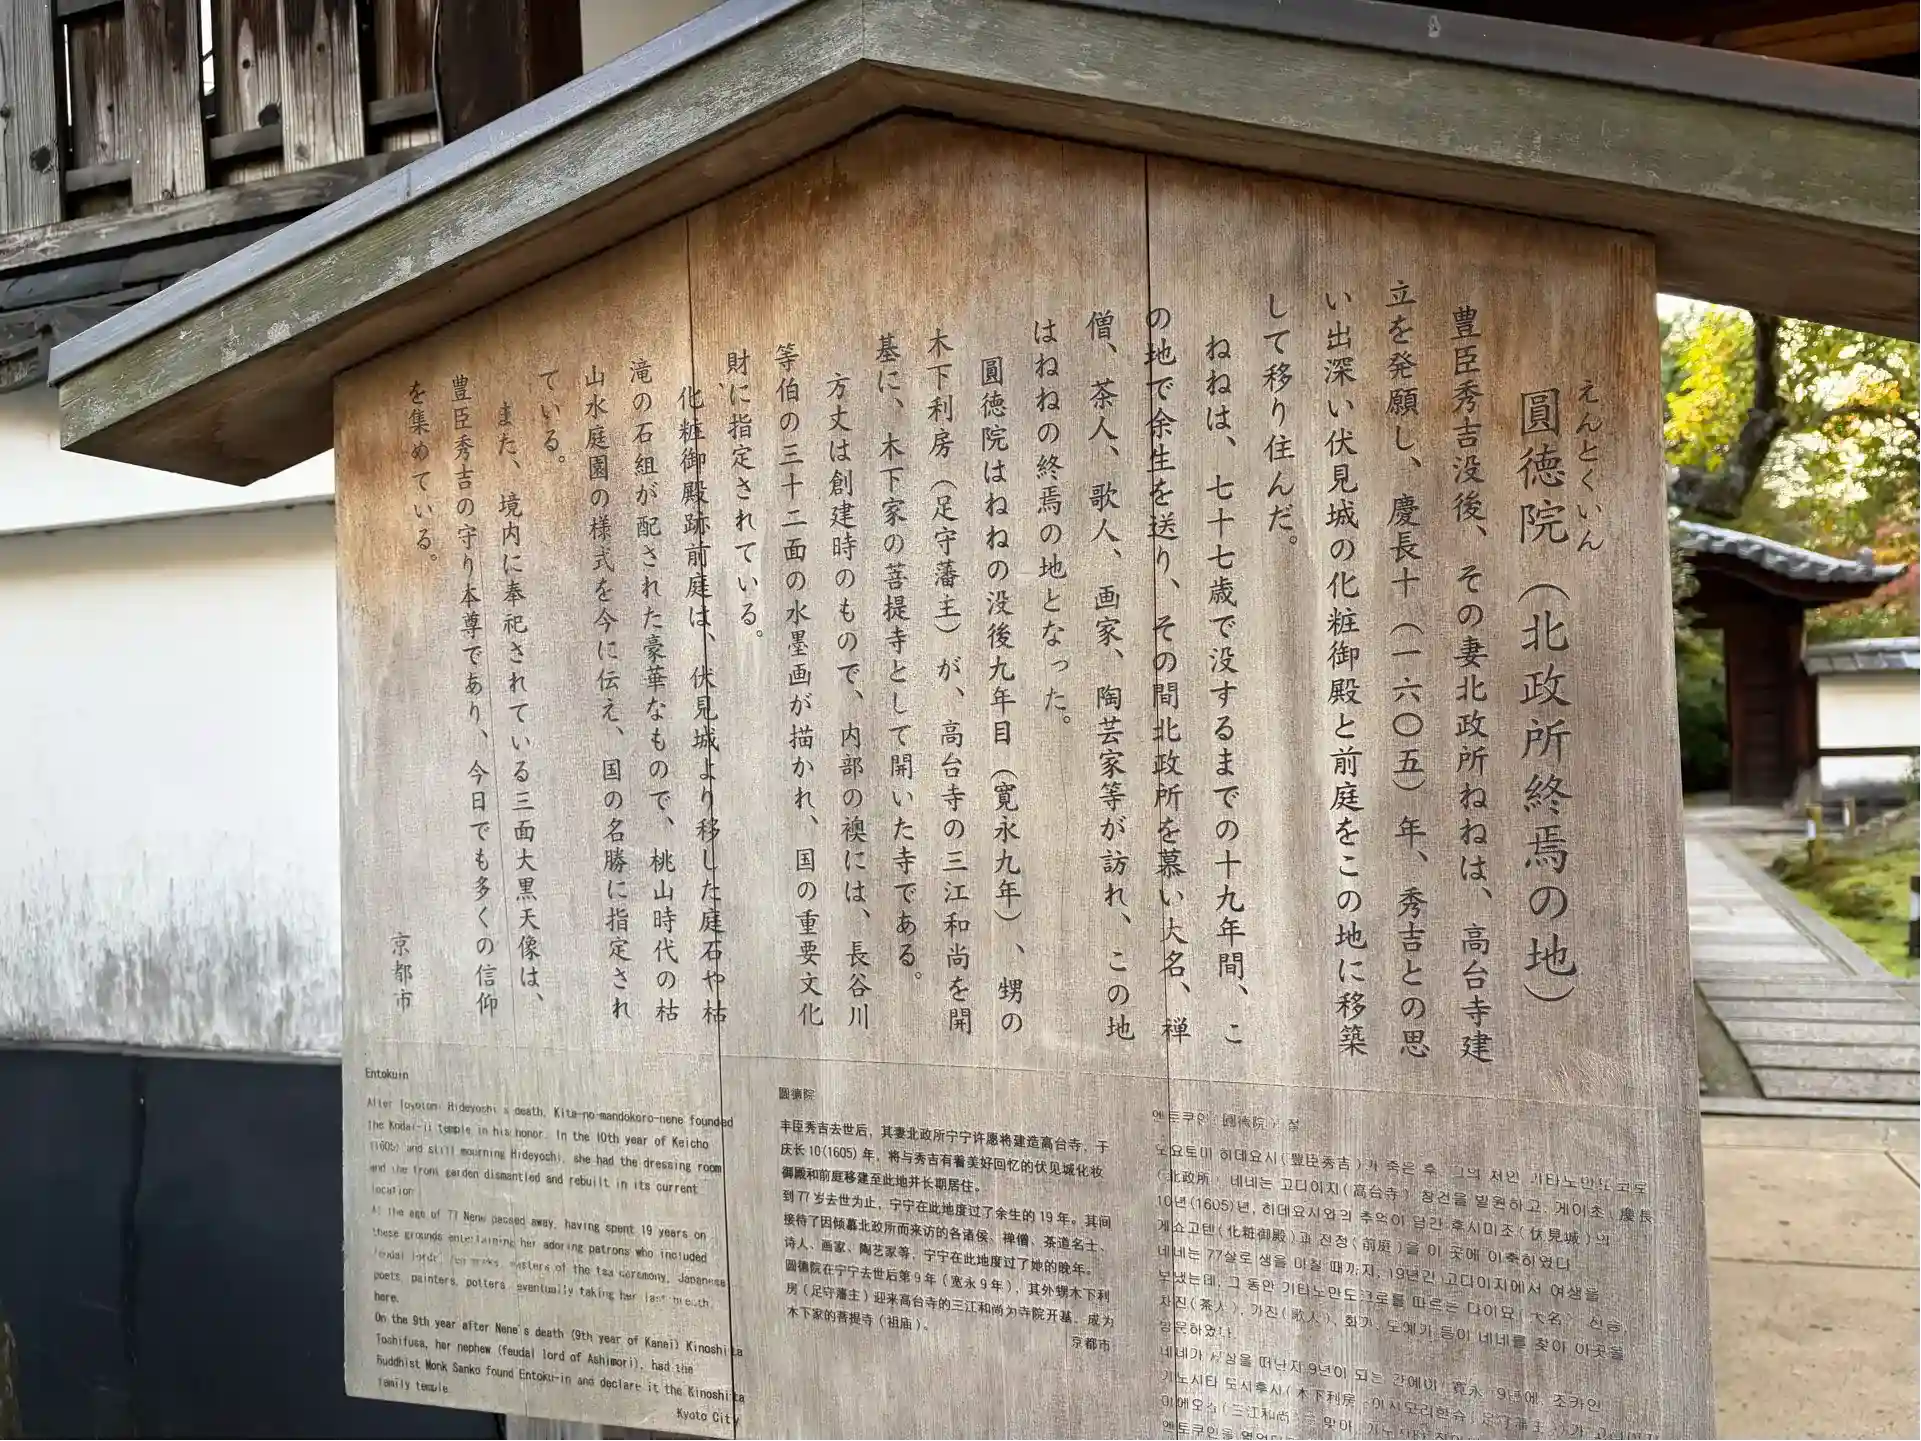 えんとくいん
圓徳院（北政所終焉の地）
豊臣秀吉没後、その妻北政所ねねは、高台寺建
立を発願し、慶長十（一六〇五）年、秀吉との思
い出深い伏見城の化粧御殿と前庭をこの地に移築
して移り住んだ。
ねねは、七十七歳で没するまでの十九年間、こ
の地で余生を送り、その間北政所を慕い大名、禅
僧、茶人、歌人、画家、陶芸家等が訪れ、この地
はねねの終焉の地となった。
圓徳院はねねの没後九年目（寛永九年）、甥の
木下利房（足守藩主）が、高台寺の三江和尚を開
基に、木下家の菩提寺として開いた寺である。
方丈は創建時のもので、内部の襖には、長谷川
等伯の三十二面の水墨画が描かれ、国の重要文化
財に指定されている。
化粧御殿跡前庭は、伏見城より移した庭石や枯
滝の石組が配された豪華なもので、桃山時代の枯
山水庭園の様式を今に伝え、国の名勝に指定され
ている。
また、境内に奉祀されている三面大黒天像は、
豊臣秀吉の守り本尊であり、今日でも多くの信仰
を集めている。
京都市
Entokuin
After Toyotomi Hideyoshi's death, Kita-no-mandokoro-nene founded
the Kodai-ji temple in his honor. In the 10th year of Keicho
(1605) and still mourning Hideyoshi, she had the dressing room
and the front garden dismantled and rebuilt in its current
location.
At the age of 77 Nene passed away, having spent 19 years on
these grounds entertaining her adoring patrons who included
feudal lords, masters of the tea ceremony, Japanese
poets, painters, potters, eventually taking her last breath
here.
On the 9th year after Nene's death (9th year of Kanei) Kinoshita
Toshifusa, her nephew (feudal lord of Ashimori), had the
Buddhist Monk Sanko found Entoku-in and declare it the Kinoshita
family temple
Kyoto City
圆德院
丰臣秀吉去世后，其妻北政所宁宁许愿将建造高台寺，于
庆长10(1605)年，将与秀吉有着美好回忆的伏见城化妆
御殿和前庭移建至此地并长期居住。
到77岁去世为止，宁宁在此地度过了余生的19年。其间
接待了因倾慕北政所而来访的各诸侯、禅僧、茶道名士、
诗人、画家、陶艺家等，宁宁在此地度过了她的晚年。
圆德院在宁宁去世后第9年（宽永9年），其外甥木下利
房（足守藩主）迎来高台寺的三江和尚为寺院开基，成为
木下家的菩提寺（祖庙）。
京都市
엔토쿠인(圓德院) 절
도요토미 히데요시(豊臣秀吉)가 죽은 후, 그의 처인 기타노만도코로
(北政所) 네네는 고다이지(高台寺) 창건을 발원하고, 게이초(慶長)
10년(1605)년, 히데요시와의 추억이 담긴 후시미조(伏見城)의
게쇼고텐(化粧御殿)과 전정(前庭)을 이 곳에 이축하였다.
네네는 77살로 생을 마칠 때까지, 19년간 고다이지에서 여생을
보냈는데, 그 동안 기타노만도코로를 따르는 다이묘(大名), 선승,
차진(茶人), 가진(歌人), 화가, 도예가 등이 네네를 찾아 이곳을
방문하였다.
네네가 세상을 떠난지 9년이 되는 간에이(寛永) 9년에, 조카인
기노시타 도시후사(木下利房